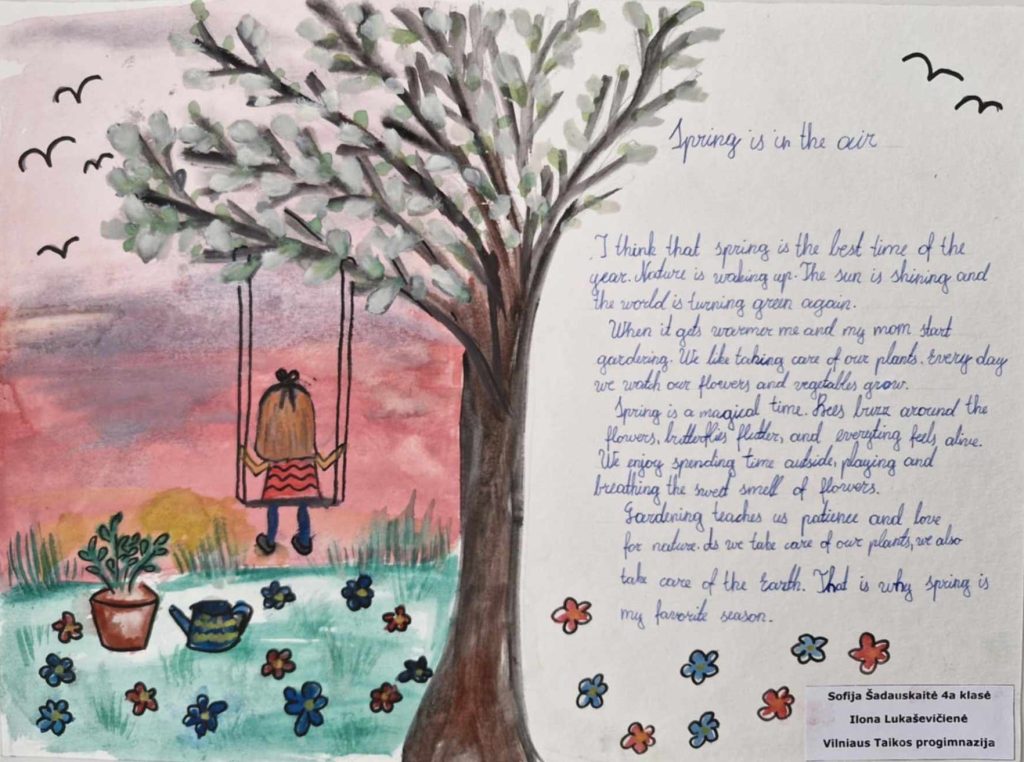 Spring is in the air
I think that spring is the best time of the
year. Nature is waking up. The sun is shining and
the world is turning green again.
When it gets warmer me and my mom start
gardering. We like taking care of our plants. Every day
we watch our flowers and vegetables grow.
Spring is a magical time. Bees buzz around the
flowers, butterflies flutter, and everyting feels alive.
We enjoy spending time outside, playing and
breathing the sweet smell of flowers.
Gardening teaches us patience and love
for nature. As we take care of our plants, we also
take care of the Earth. That is why spring is
my favorite season.
Sofija Šadauskaitė 4a klasė
Ilona Lukaševičienė
Vilniaus Taikos progimnazija